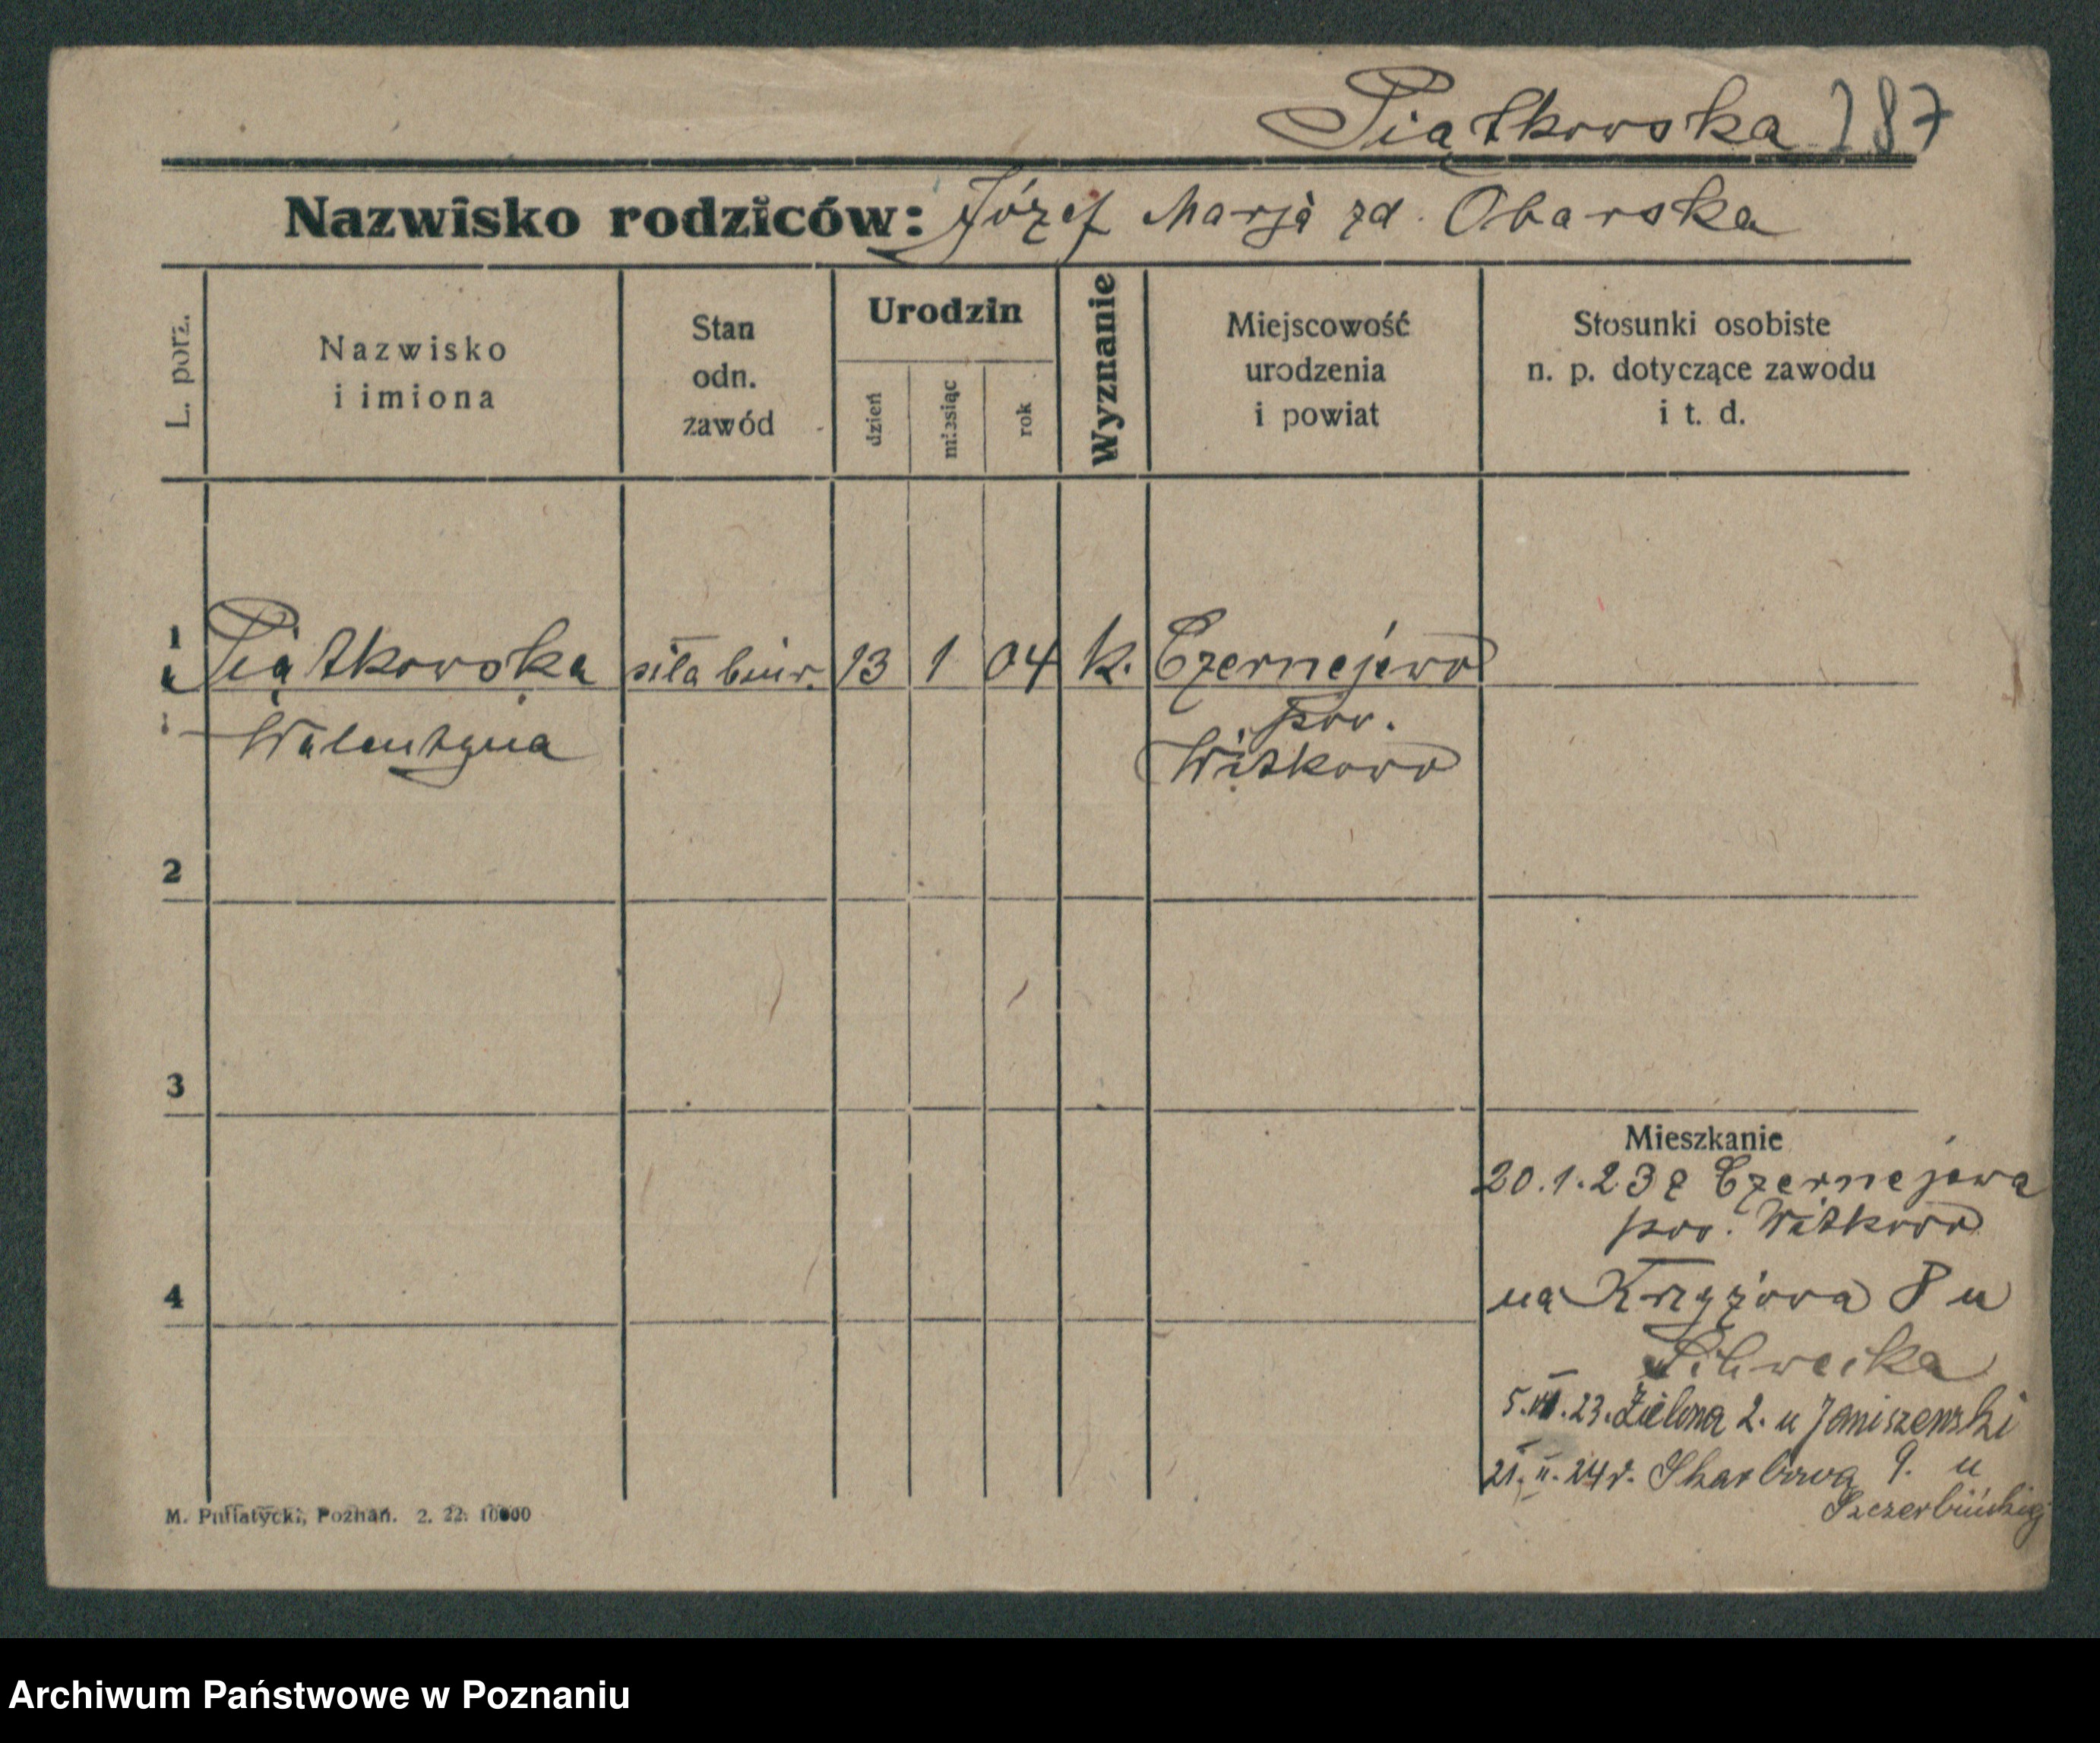 Piątkowska 287
Nazwisko rodziców: Józef Marja zd. Obarska
L. porz.
Nazwisko
i imiona
Stan
odn.
zawód
Urodzin
dzień
miesiąc
rok
Wyznanie
Miejscowość
urodzenia
i powiat
Stosunki osobiste
n. p. dotyczące zawodu
i t. d.
1 Piątkowska siła biur. 13 1 04 k. Czernejewo
Walentyna pow.
Witkowo
2
3
4
Mieszkanie
20.1.23 z Czernejewa
pow. Witkowo
na Krzyżowa 8 u
5.VII.23. Zielona 2. u Janiszewski
21. II. 24 r. Skarbowa 9. u
Szczerbińskiej
M. Putiatycki, Poznań. 2. 22. 10000
Archiwum Państwowe w Poznaniu